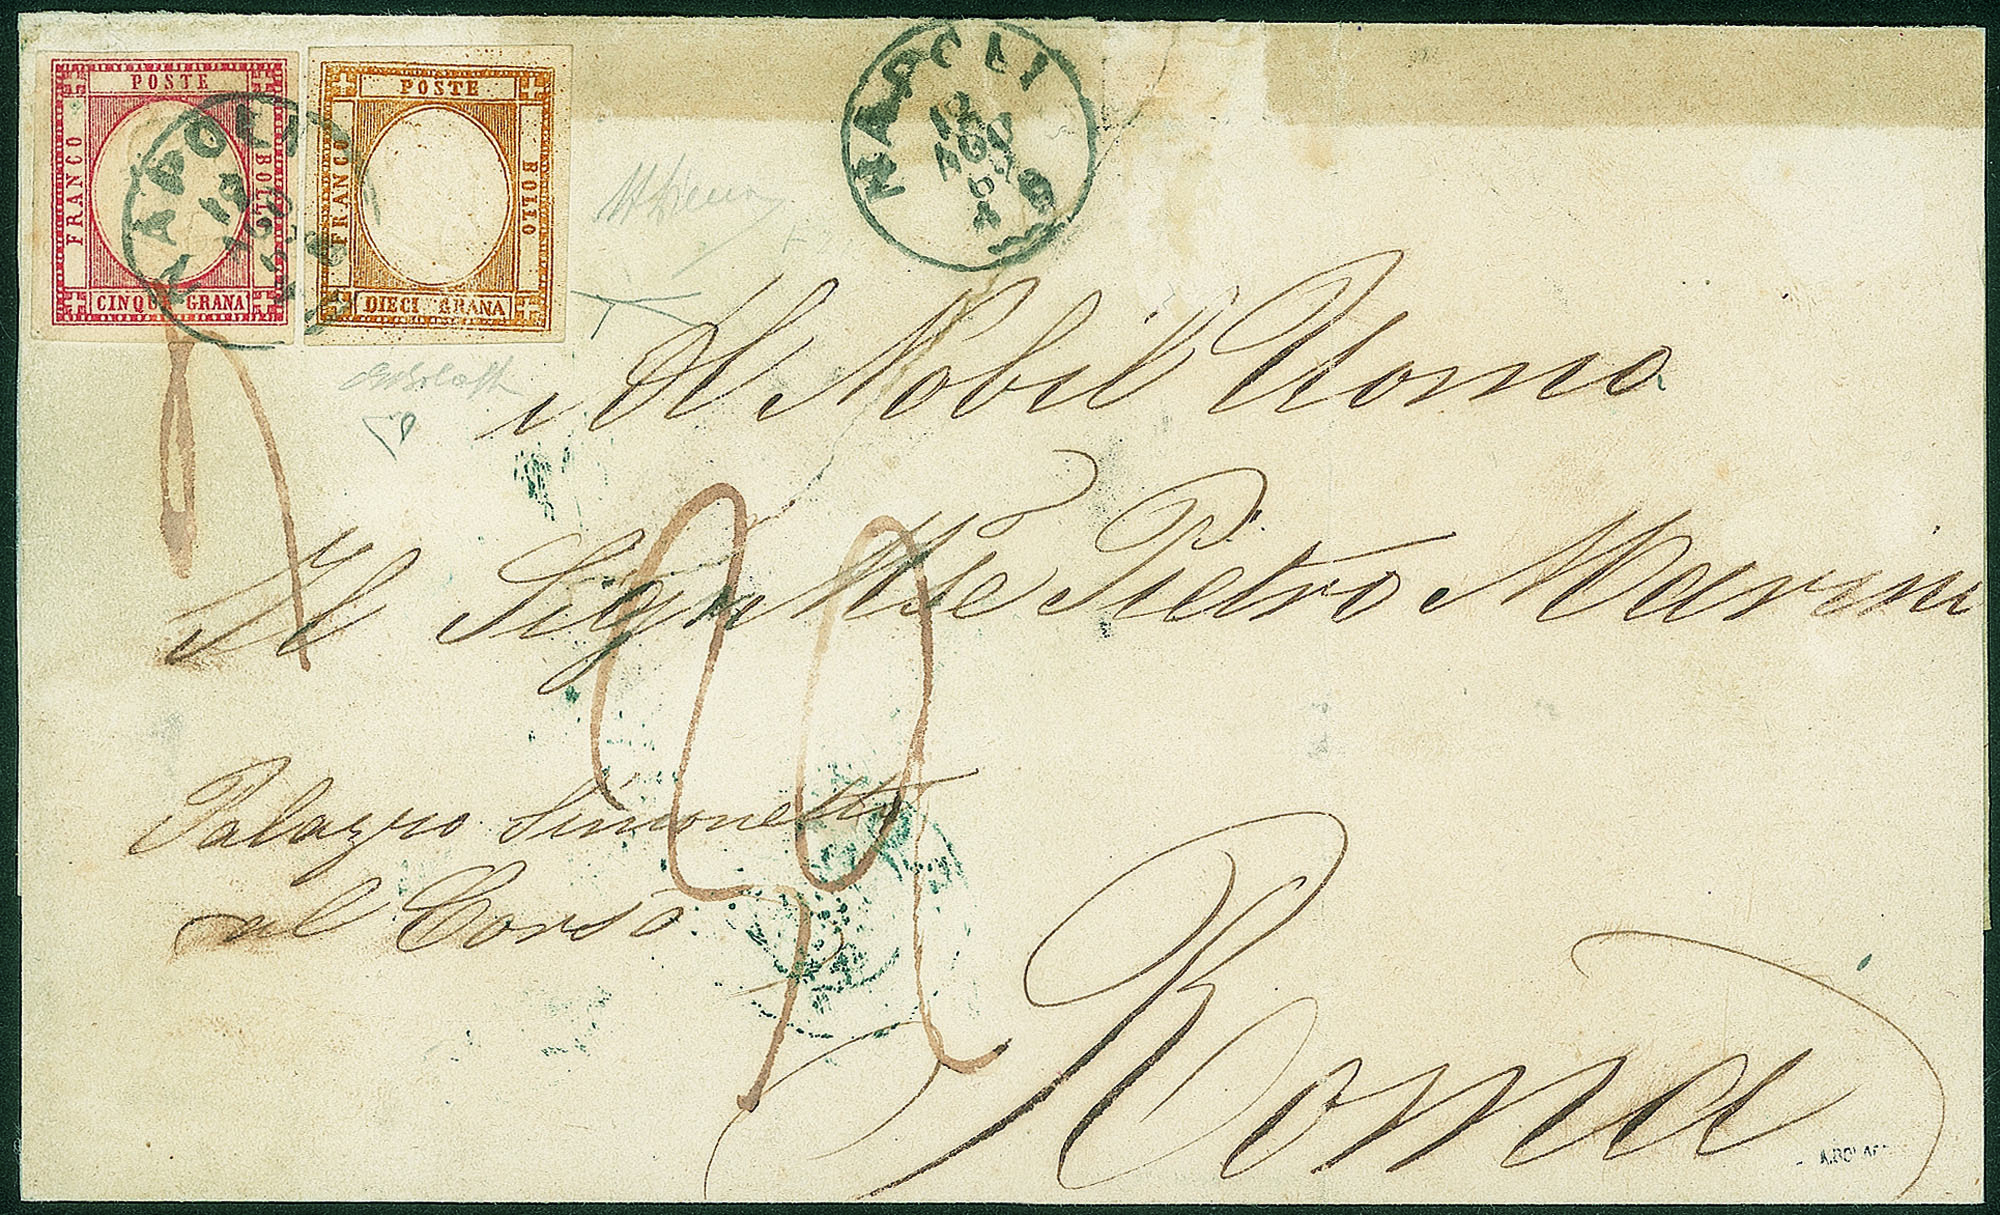 POSTE
FRANCO
BOLLO
CINQUE GRANA
POSTE
FRANCO
BOLLO
DIECI GRANA
NAPOLI
12
AGO
NAPOLI
12
AGO
Al Nobil Uomo
Il Sigr Mse Pietro Marini
Palazzo Simonetti
al Corso
Roma